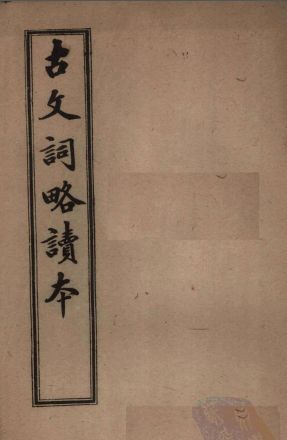 古文詞略讀本